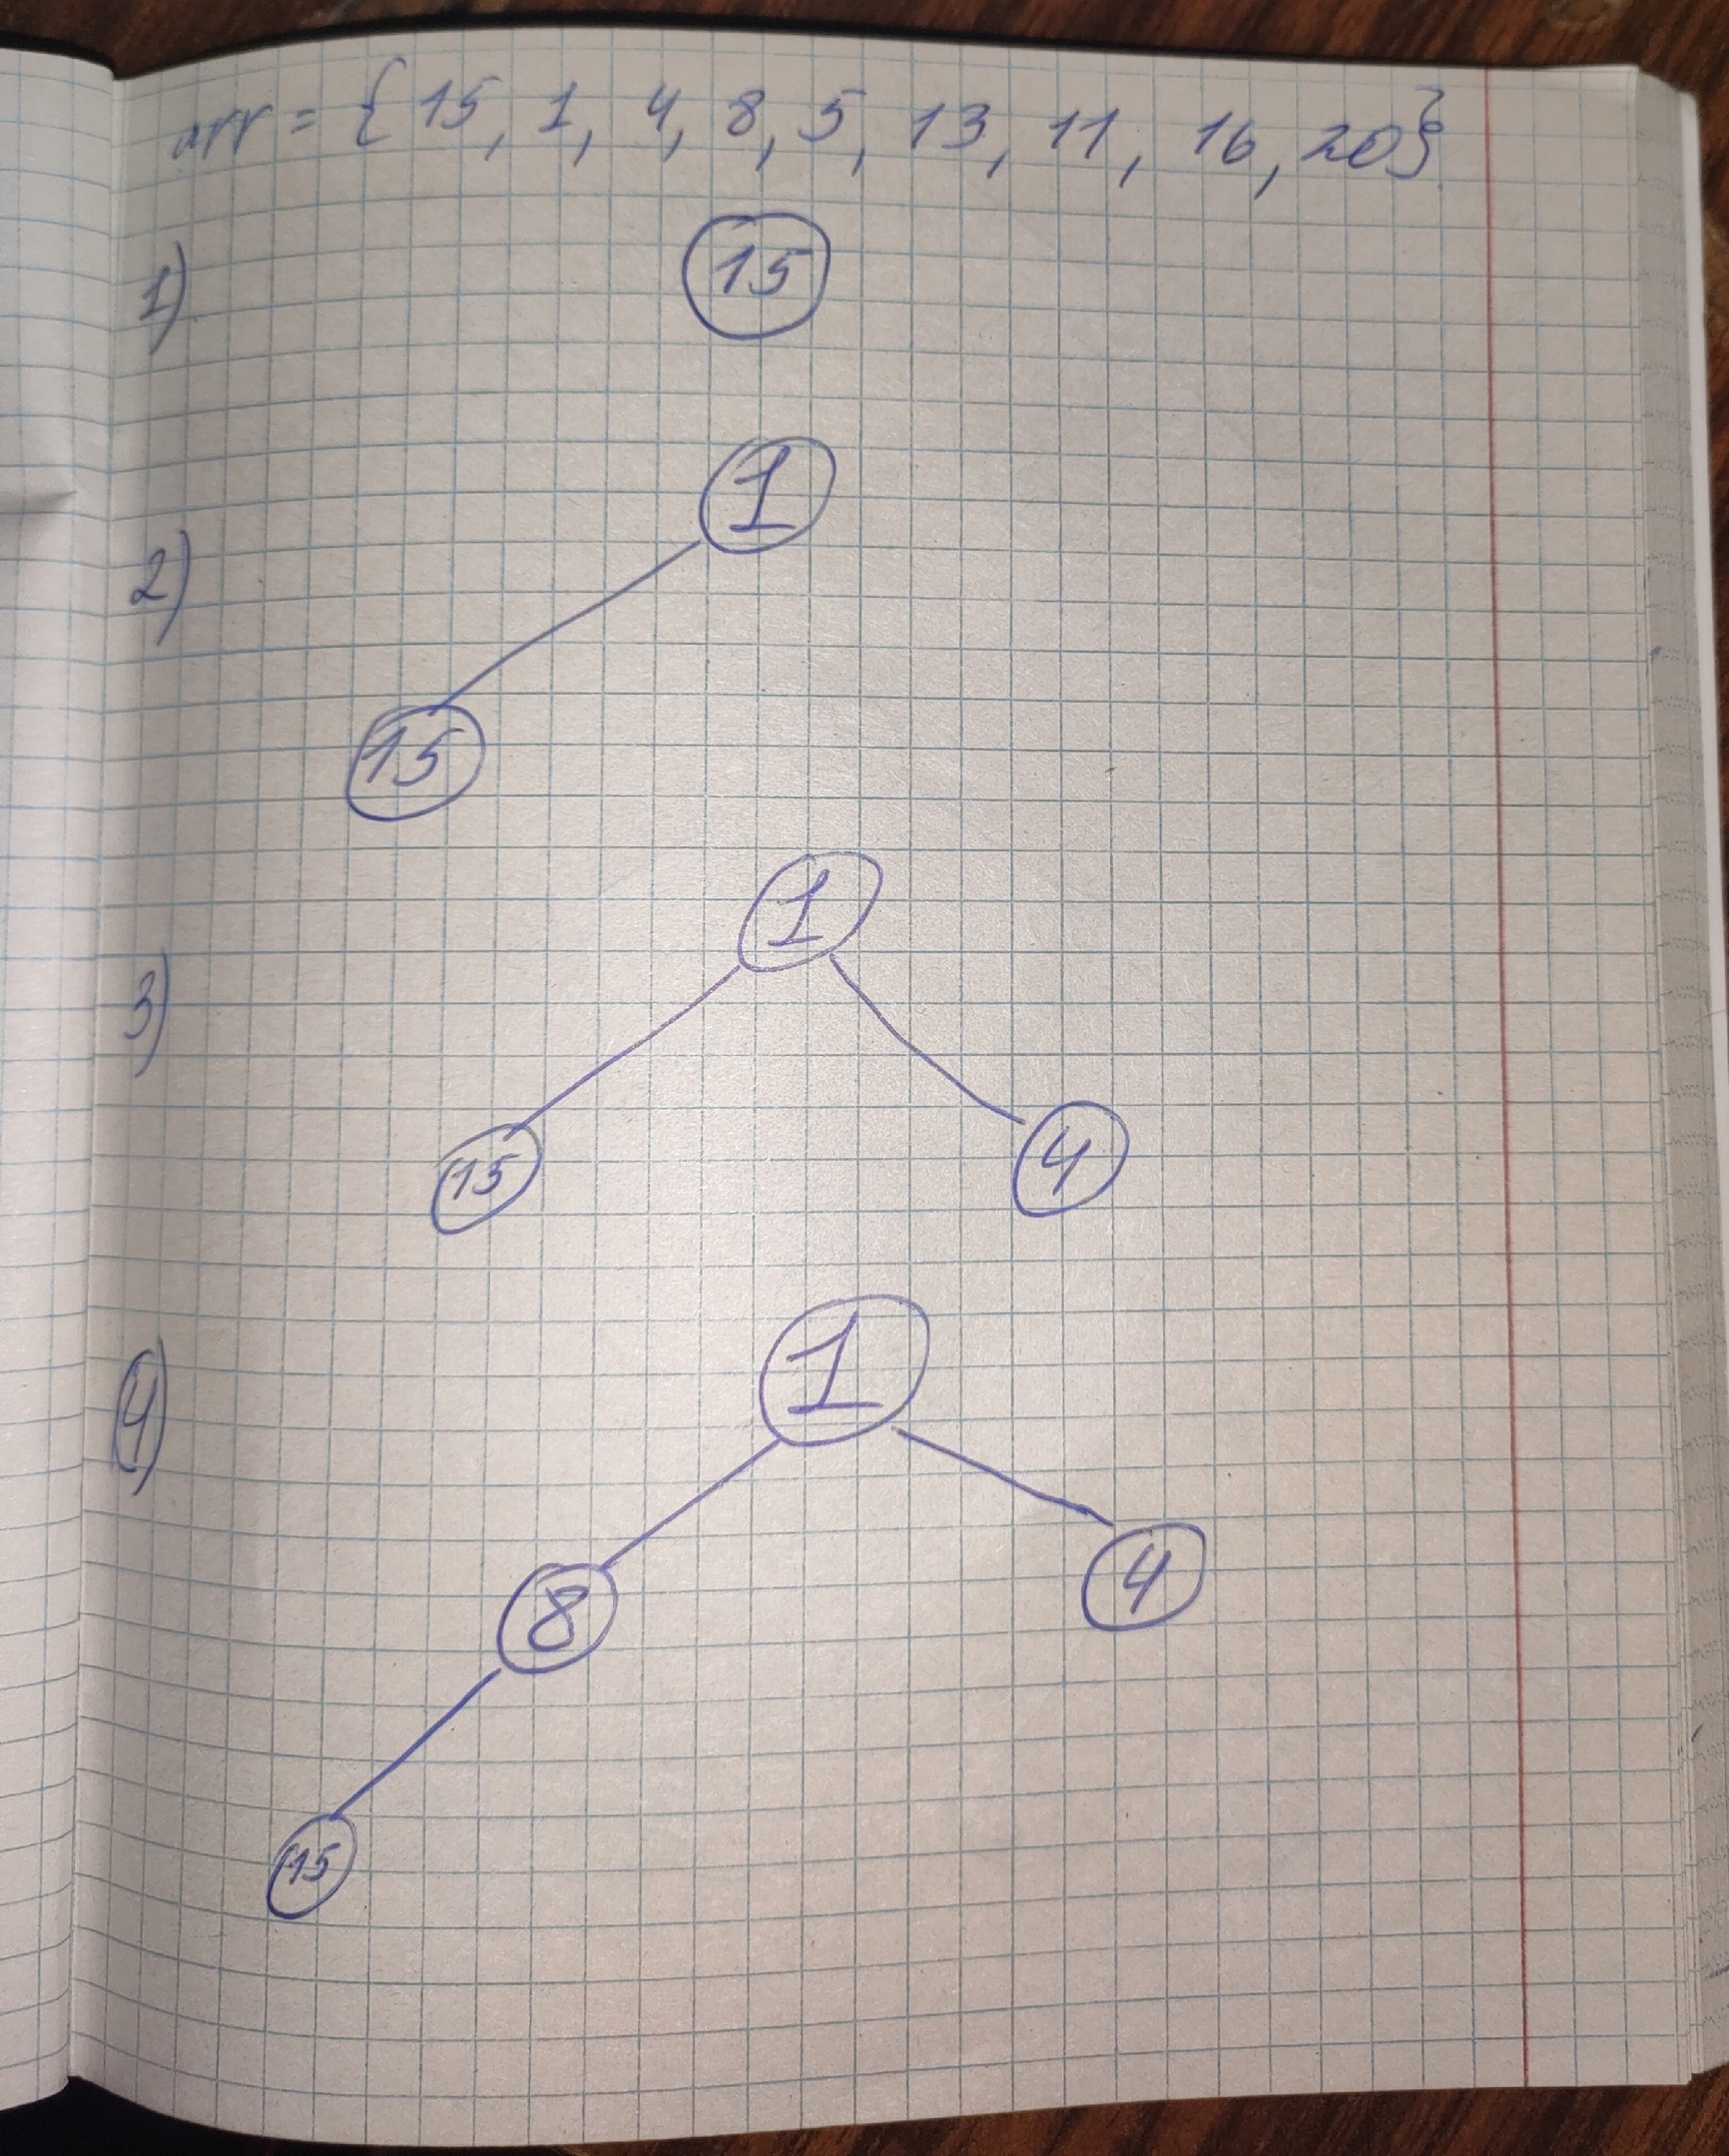 arr = {15, 1, 4, 8, 5, 13, 11, 16, 20}
1)
15
2)
1
15
3)
1
15
4
4)
1
8
4
15